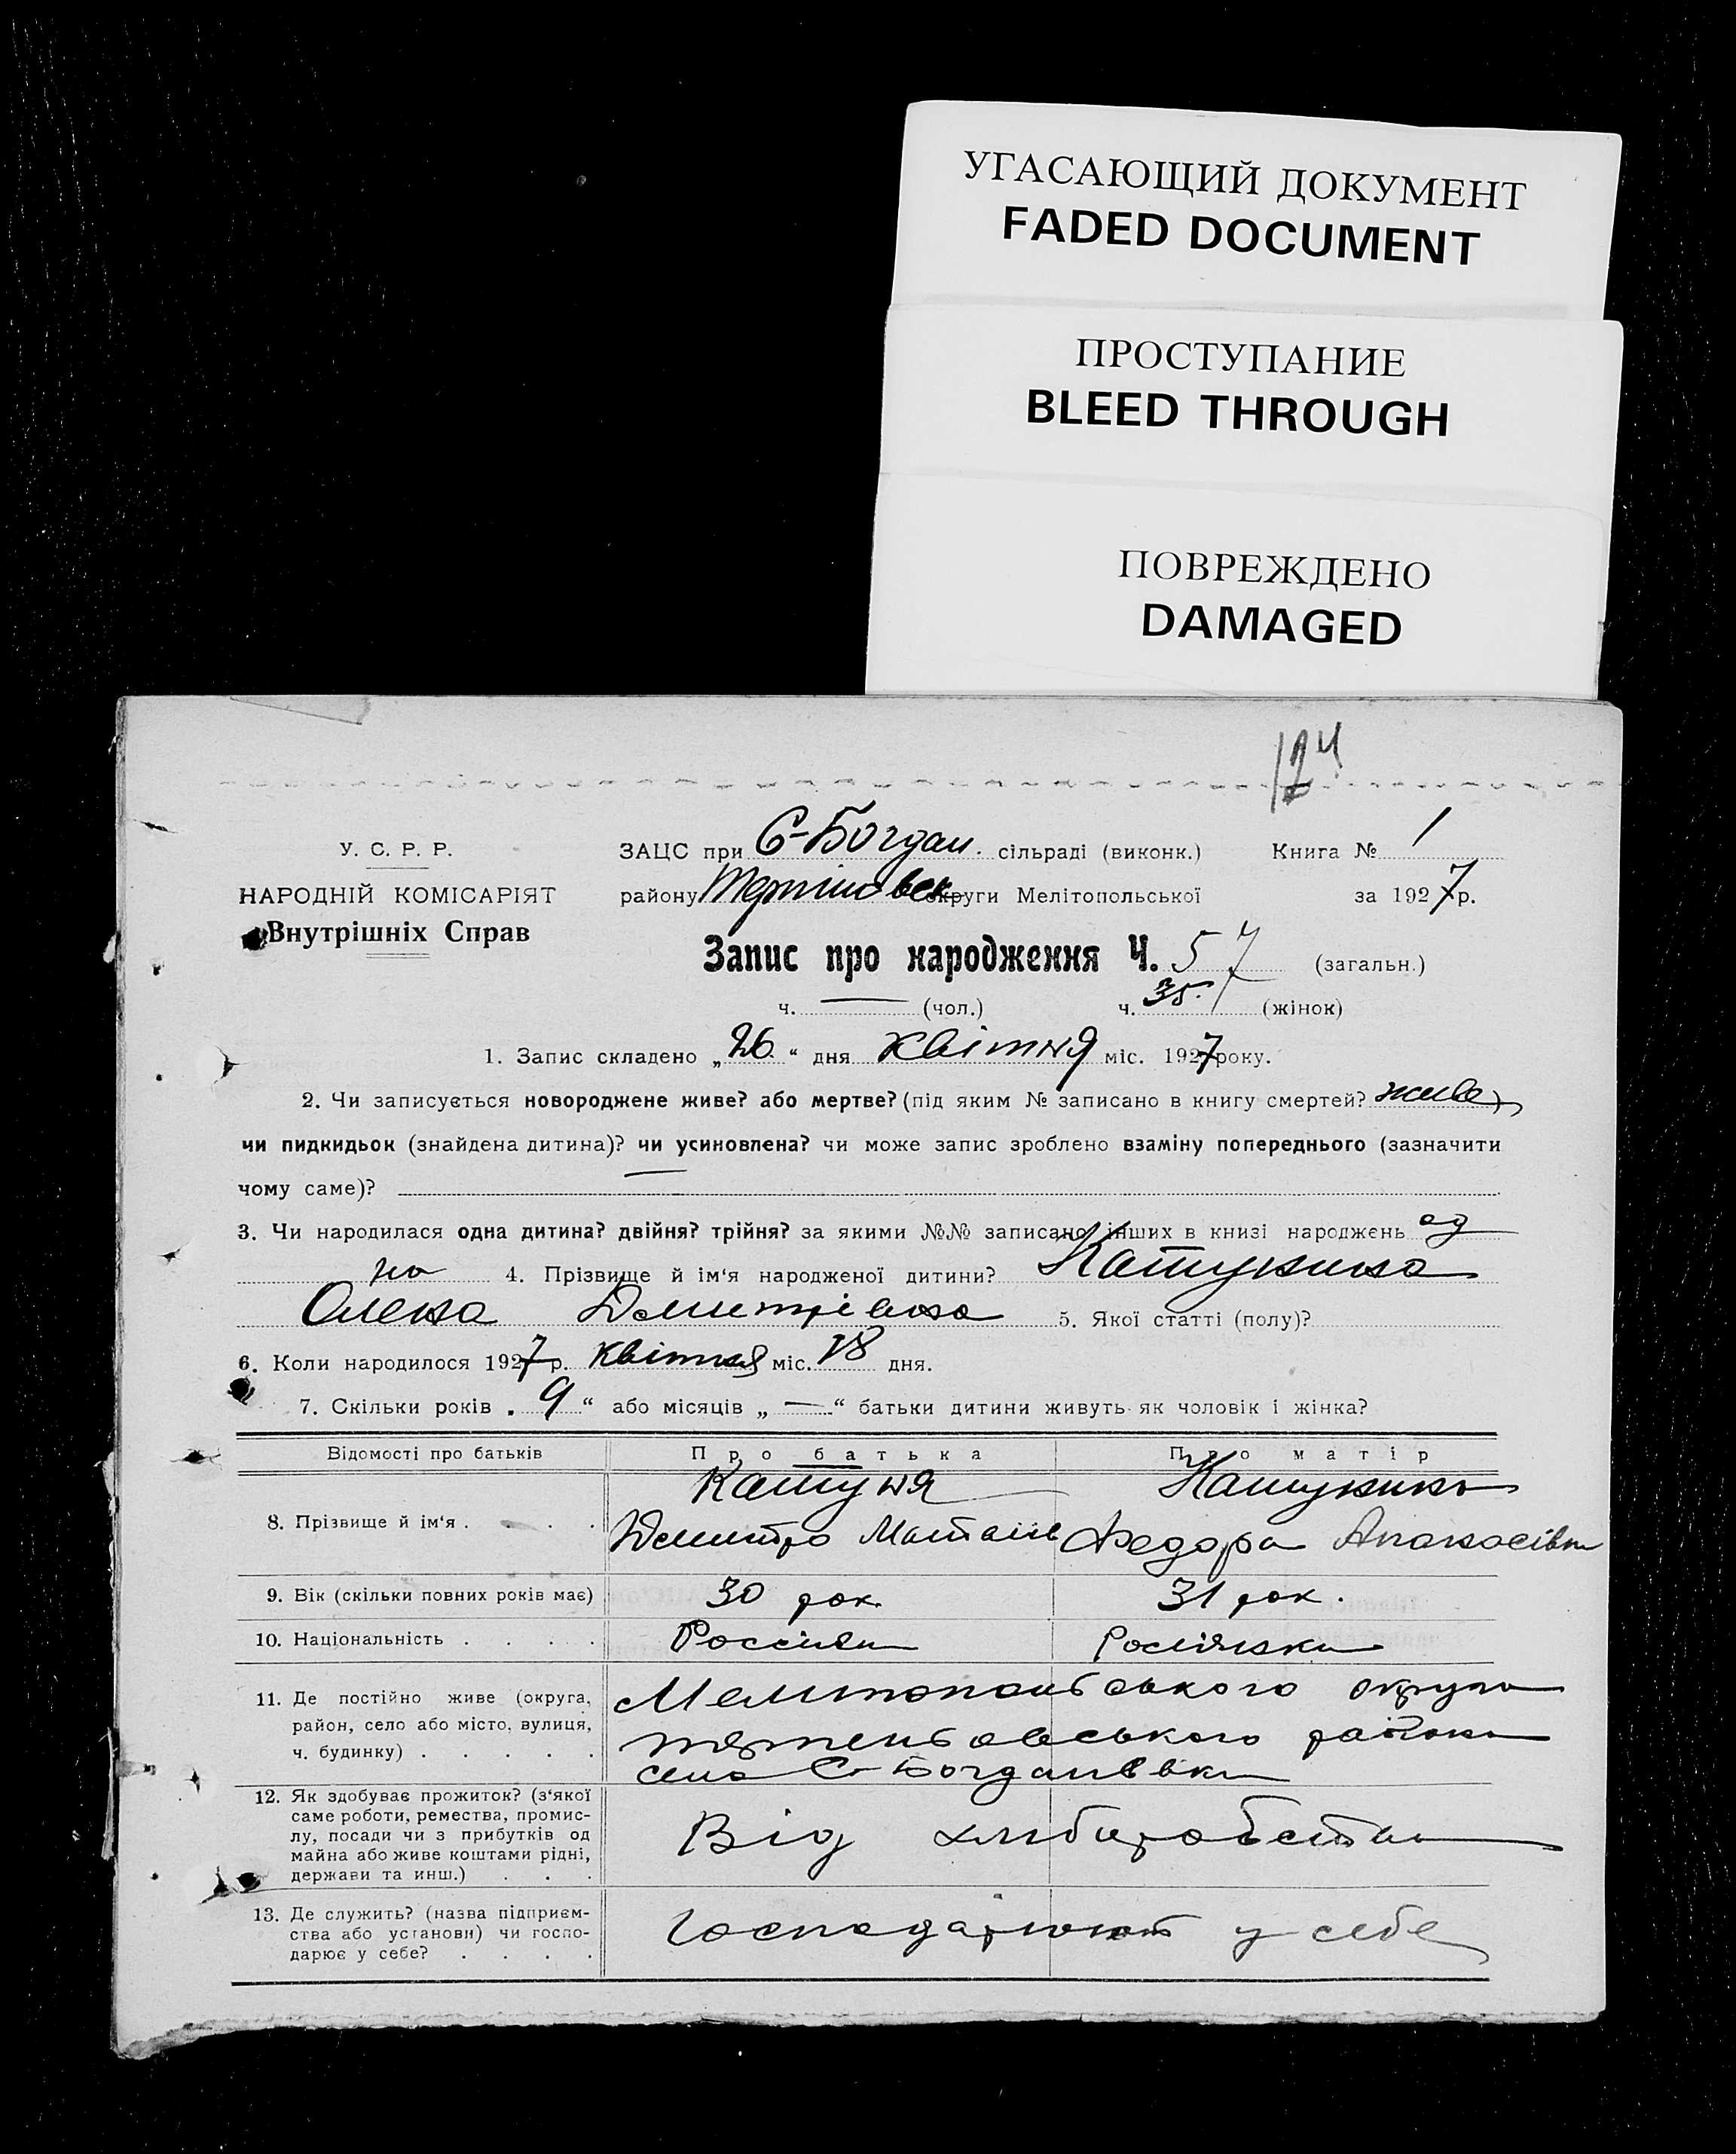 УГАСАЮЩИЙ ДОКУМЕНТ
FADED DOCUMENT
ПРОСТУПАНИЕ
BLEED THROUGH
ПОВРЕЖДЕНО
DAMAGED
124
У. С. Р. Р.
НАРОДНІЙ КОМІСАРІЯТ
Внутрішніх Справ
ЗАЦС при С-Богдан. сільраді (виконк.) Книга № 1
району округи Мелітопольської за 1927 р.
Запис про народження Ч. 57 (загальн.)
ч. — (чол.) ч. 35. (жінок)
1. Запис складено „26“ дня квітня міс. 1927 року.
2. Чи записується новороджене живе? або мертве? (під яким № записано в книгу смертей? живе)
чи пидкидьок (знайдена дитина)? чи усиновлена? чи може запис зроблено взаміну попереднього (зазначити
чому саме)? —
3. Чи народилася одна дитина? двійня? трійня? за якими №№ записано інших в книзі народжень од
на 4. Прізвище й ім‘я народженої дитини?
Олена Дмитрівна 5. Якої статті (полу)?
6. Коли народилося 1927 р. квітня міс. 18 дня.
7. Скільки років „ 9 “ або місяців „ — “ батьки дитини живуть як чоловік і жінка?
Відомості про батьків Про батька Про матір
8. Прізвище й ім‘я . . . .
Дмитро Федора
9. Вік (скільки повних років має) 30 рок. 31 рок.
10. Національність . . . . Россіян Росіянка
11. Де постійно живе (округа, Мелитопольського округа
район, село або місто, вулиця, района
ч. будинку) . . . . . села С-Богданівки
12. Як здобуває прожиток? (з‘якої
саме роботи, ремества, промис-
лу, посади чи з прибутків од
майна або живе коштами рідні,
держави та инш.) . . .
Від хлиборобства
13. Де служить? (назва підприєм-
ства або установи) чи госпо-
дарює у себе? . . . .
Господарюють у себе